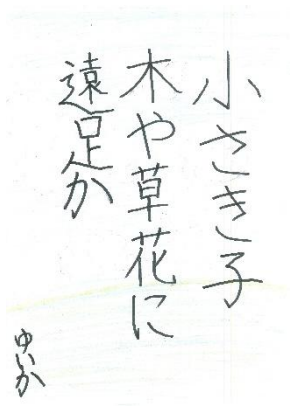 小さき子
木や草花に
遠足か
ゆいか